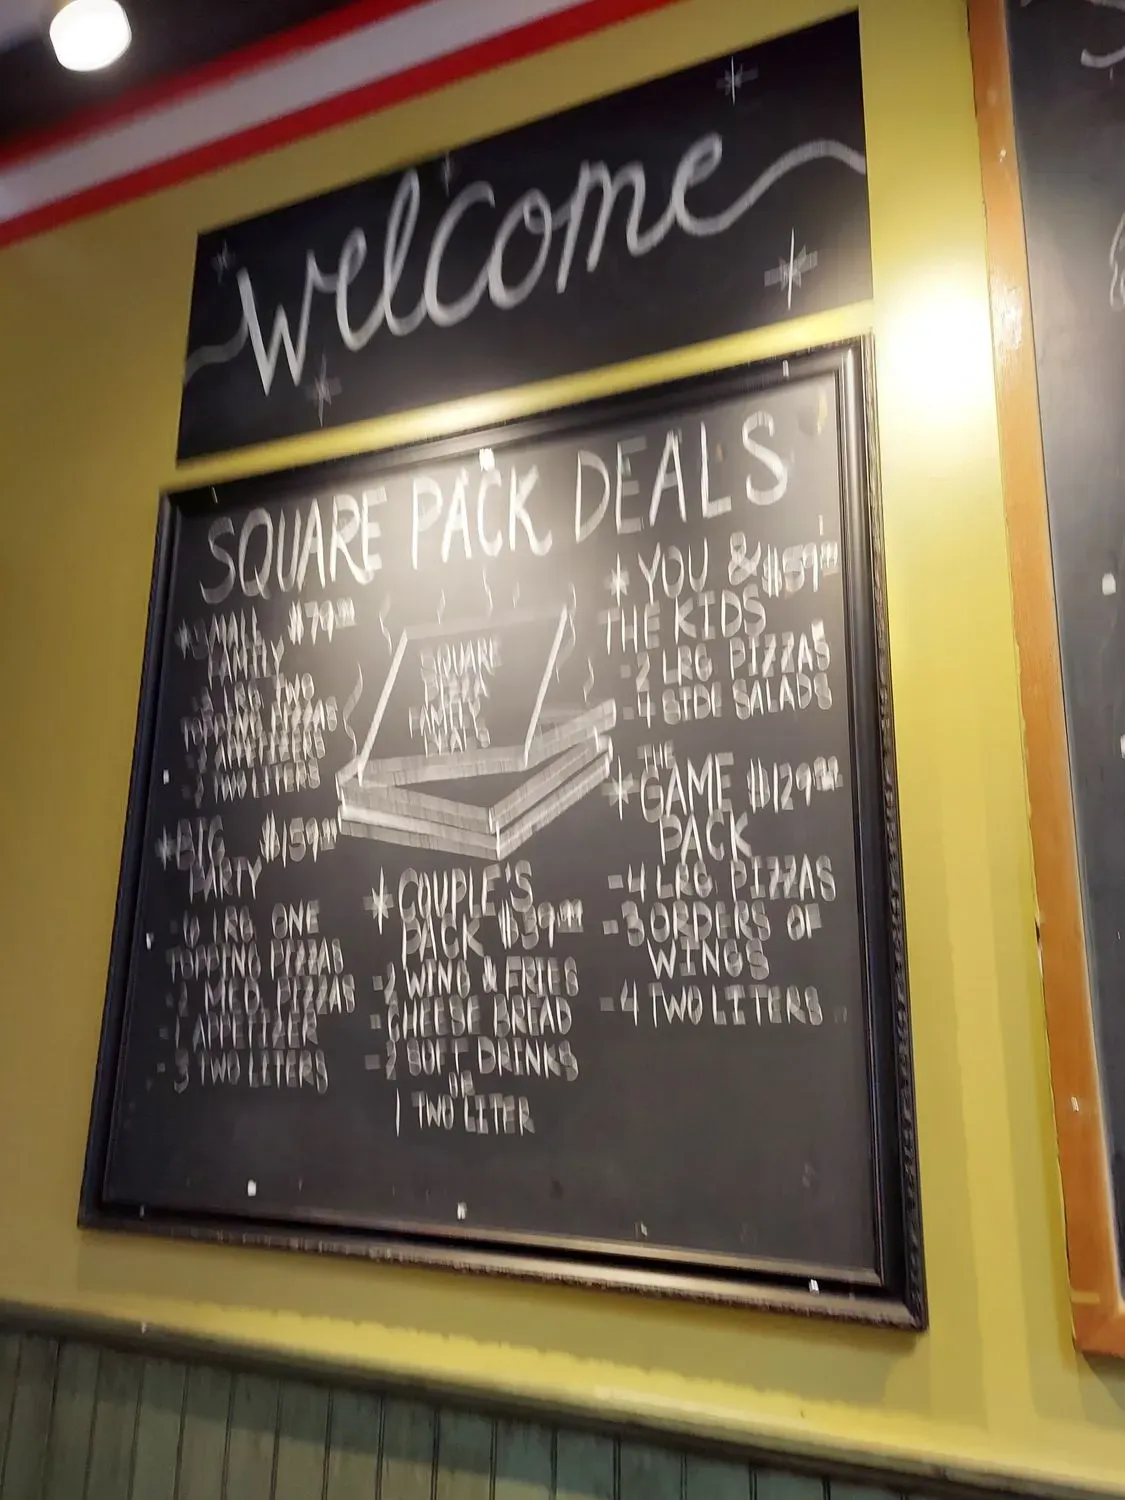 welcome
SQUARE PACK DEALS
* SMALL $79.99
FAMILY
LRG TWO
TOPPING PIZZAS
2 APPETIZERS
2 TWO LITERS
* BIG $159.99
PARTY
LRG ONE
TOPPING PIZZAS
MED. PIZZAS
1 APPETIZER
3 TWO LITERS
SQUARE
PIZZA
FAMILY
MEALS
* COUPLE'S
PACK $39.99
- 2 WING & FRIES
- CHEESE BREAD
- 2 SOFT DRINKS
OR
1 TWO LITER
* YOU & $59.99
THE KIDS
- 2 LRG PIZZAS
- 4 SIDE SALADS
THE
* GAME $129.99
PACK
- 4 LRG PIZZAS
- 3 ORDERS OF
WINGS
- 4 TWO LITERS